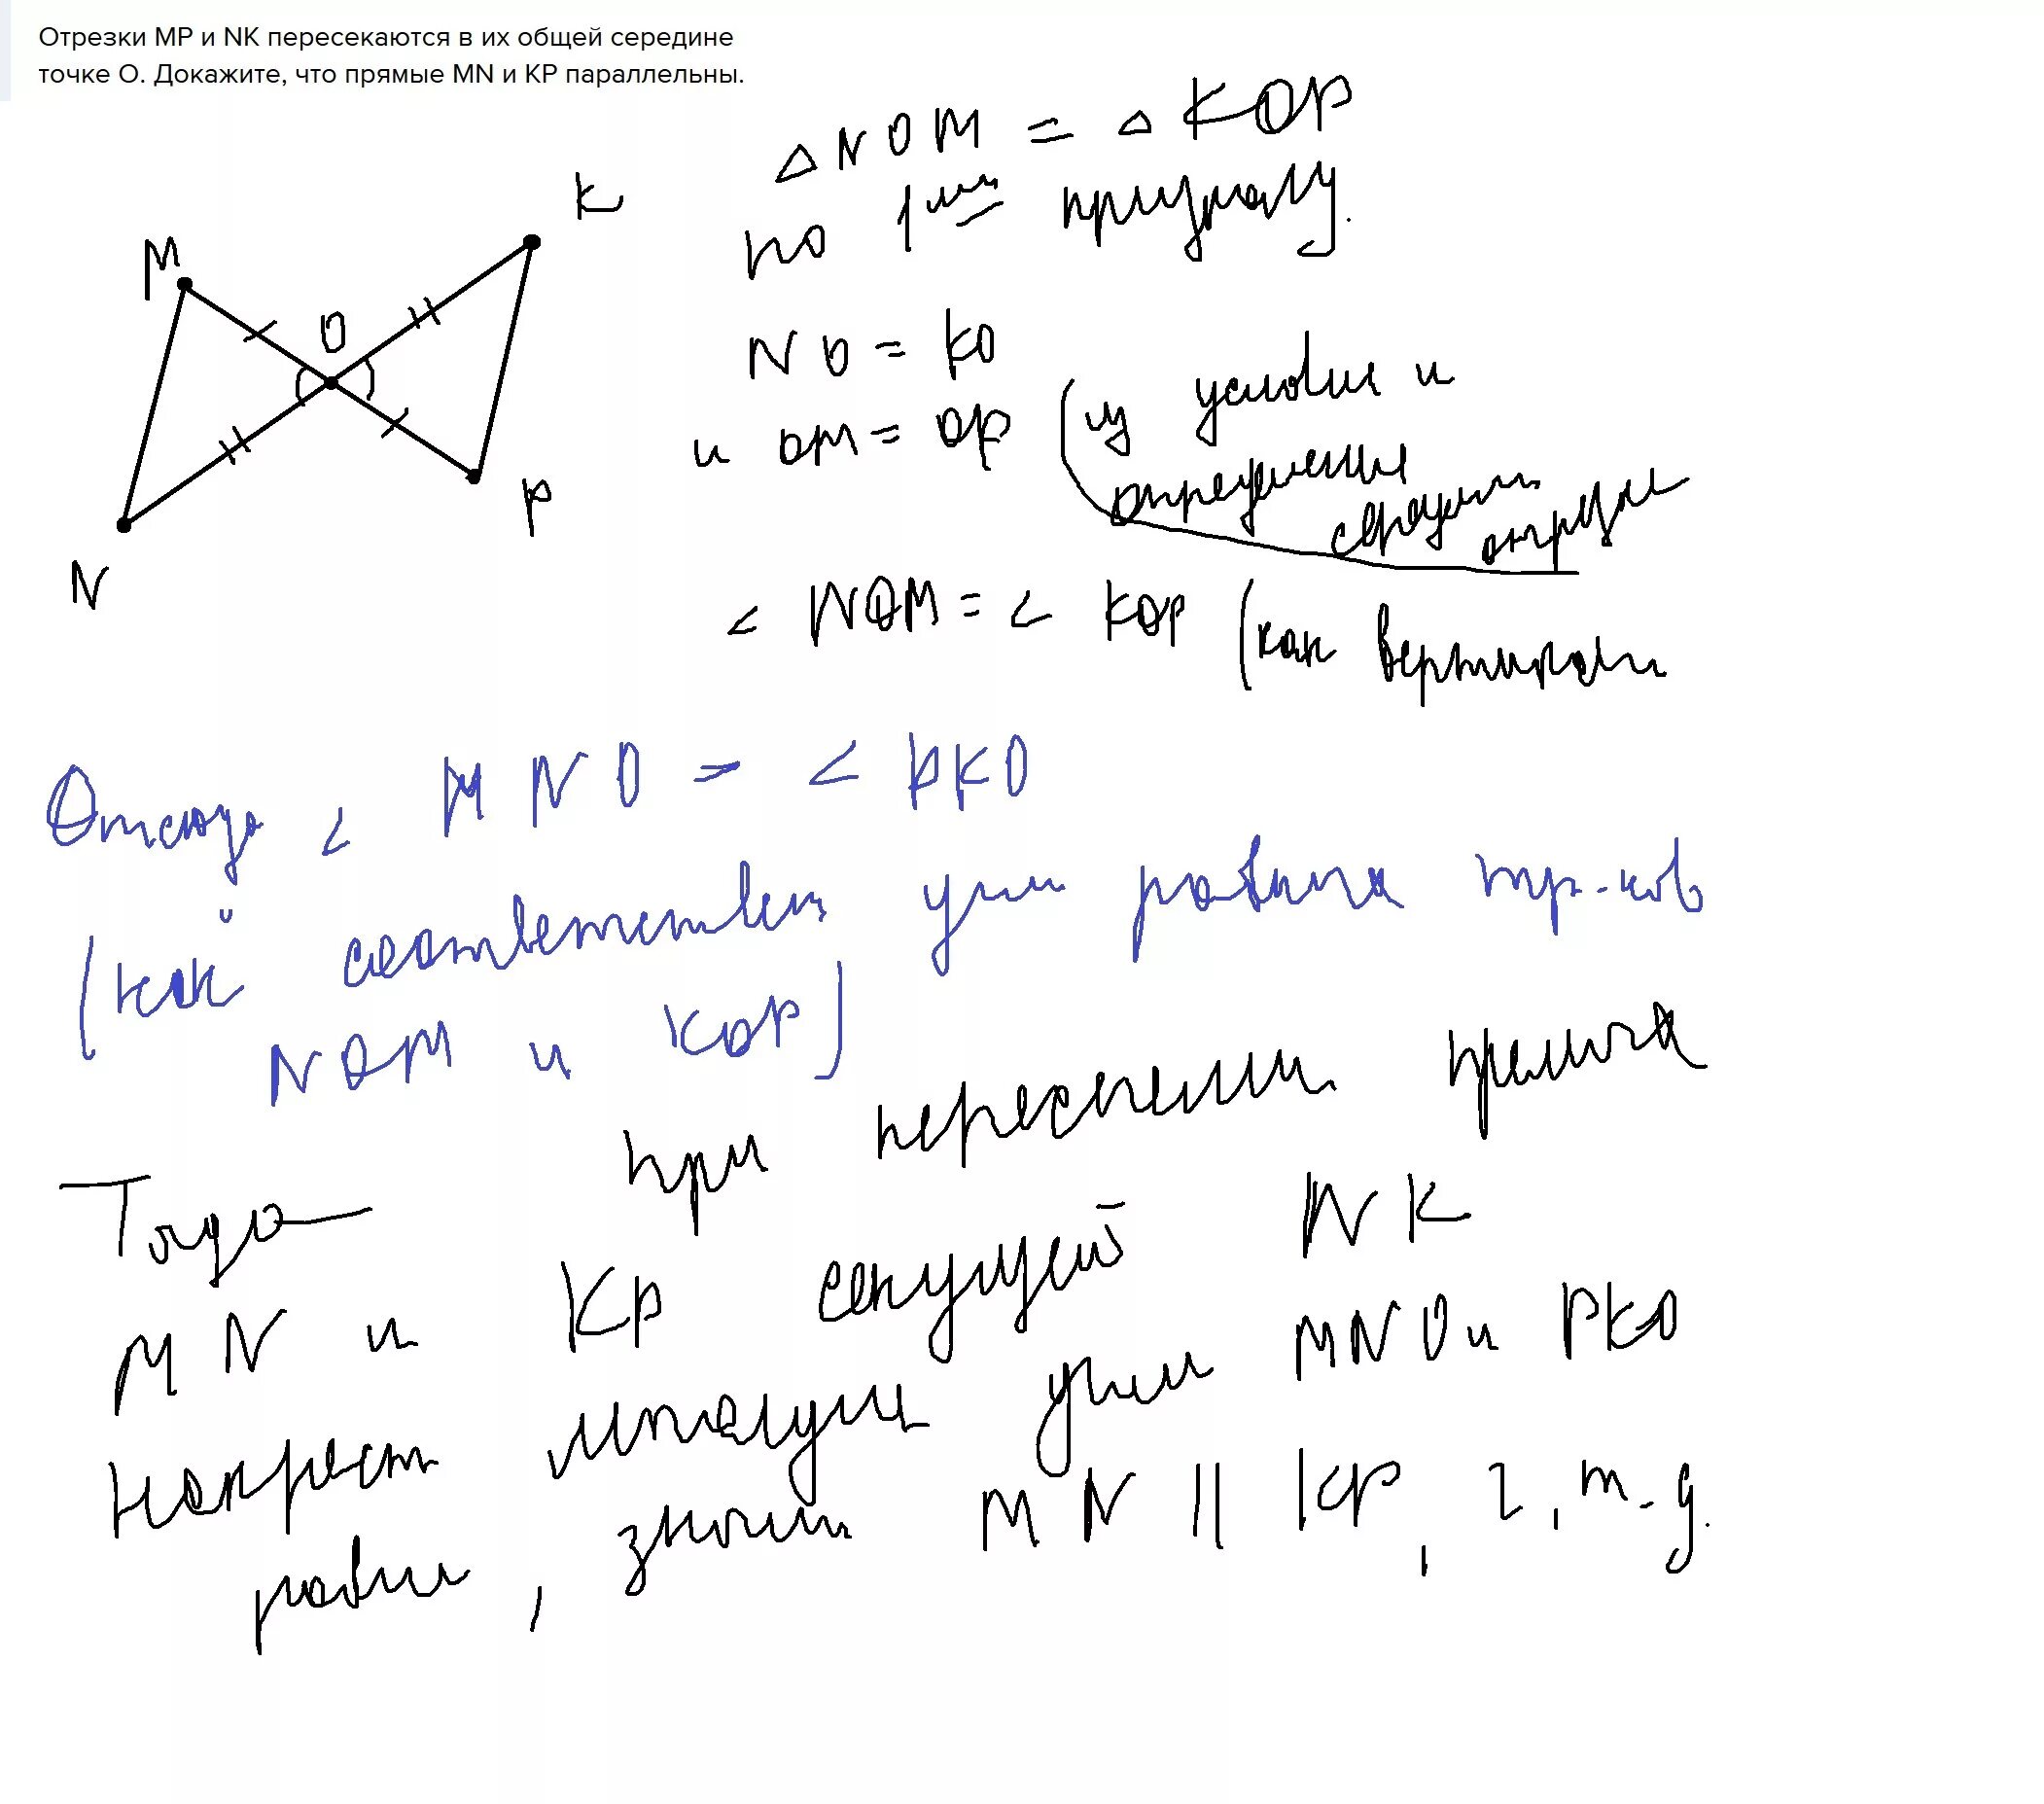 Отрезки MP и NK пересекаются в их общей середине
точке O. Докажите, что прямые MN и KP параллельны.
△ NOM = △ KOP
по 1ому признаку.
K
M
O
NO = KO
и OM = OP (из условия и
определения
середины
отрезка
P
N
< NOM = < KOP (как вертикальн
Отсюда < MNO = < PKO
(как соответствен углы равных тр-ков
NOM и KOP)
Тогда при пересечении прямых
MN и KP секущей NK
накрест лежащие углы MNO и PKO
равны, значит MN || KP, ч.т.д.